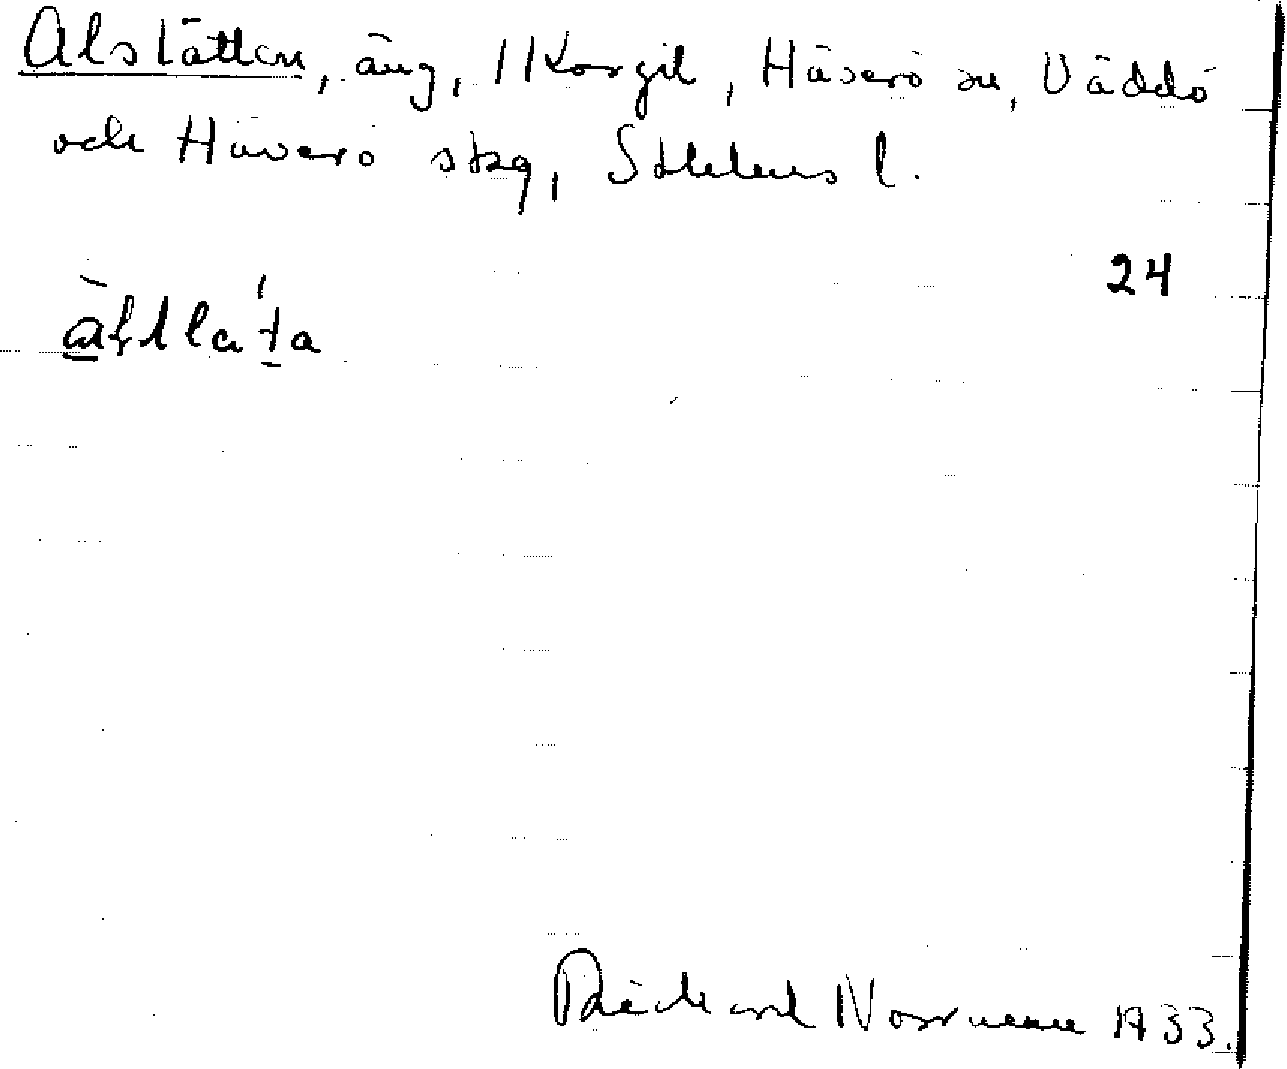 Alslätten, äng, Korgil, Häverö sn, Väddö
och Häverö skg, Sthlms l.
24
Rickard Norrman 1933.